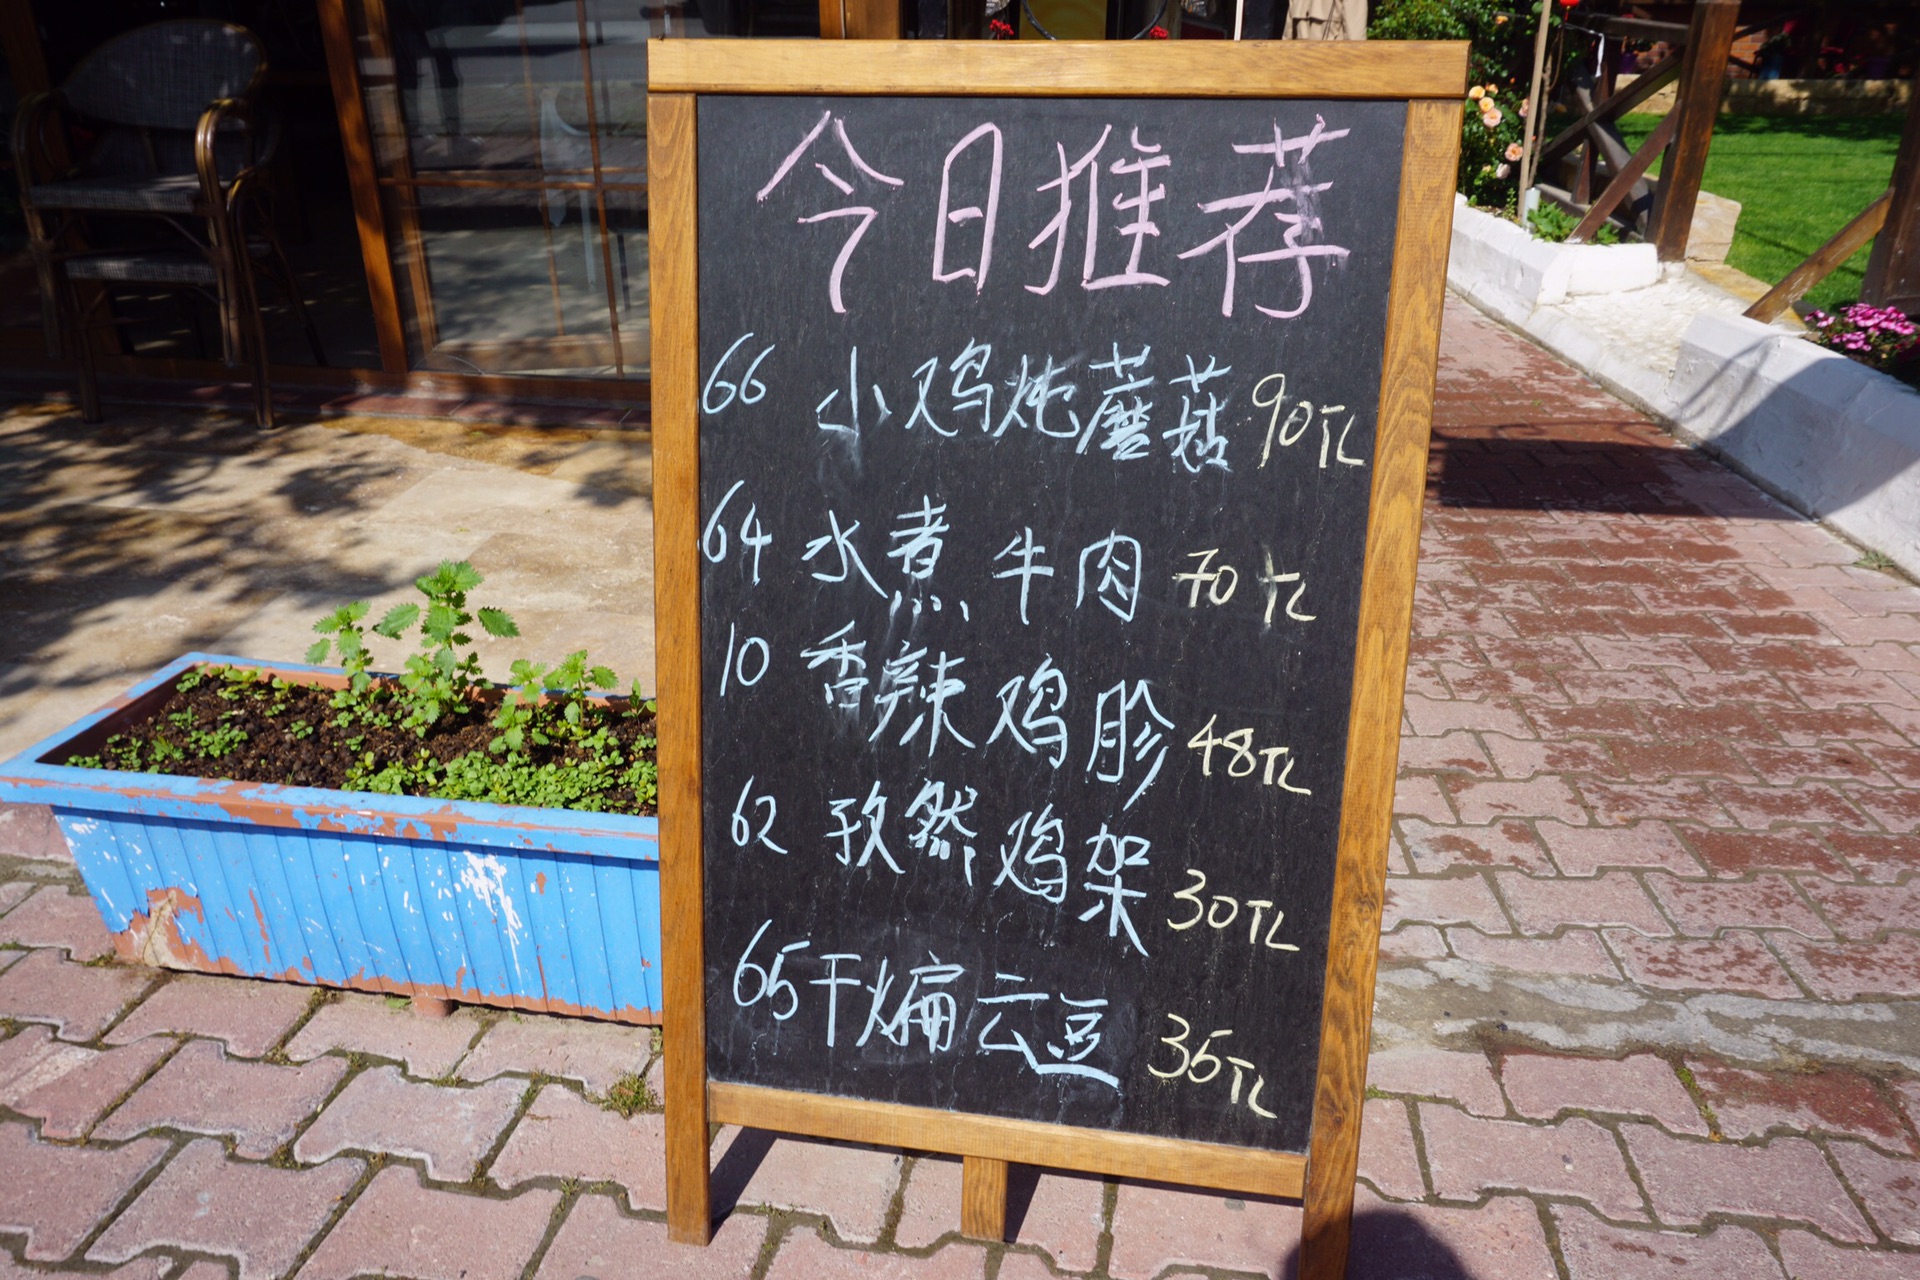 今日推荐
66 小鸡炖蘑菇 90TL
64 水煮牛肉 70TL
10 香辣鸡胗 48TL
62 孜然鸡架 30TL
65 干煸云豆 35TL